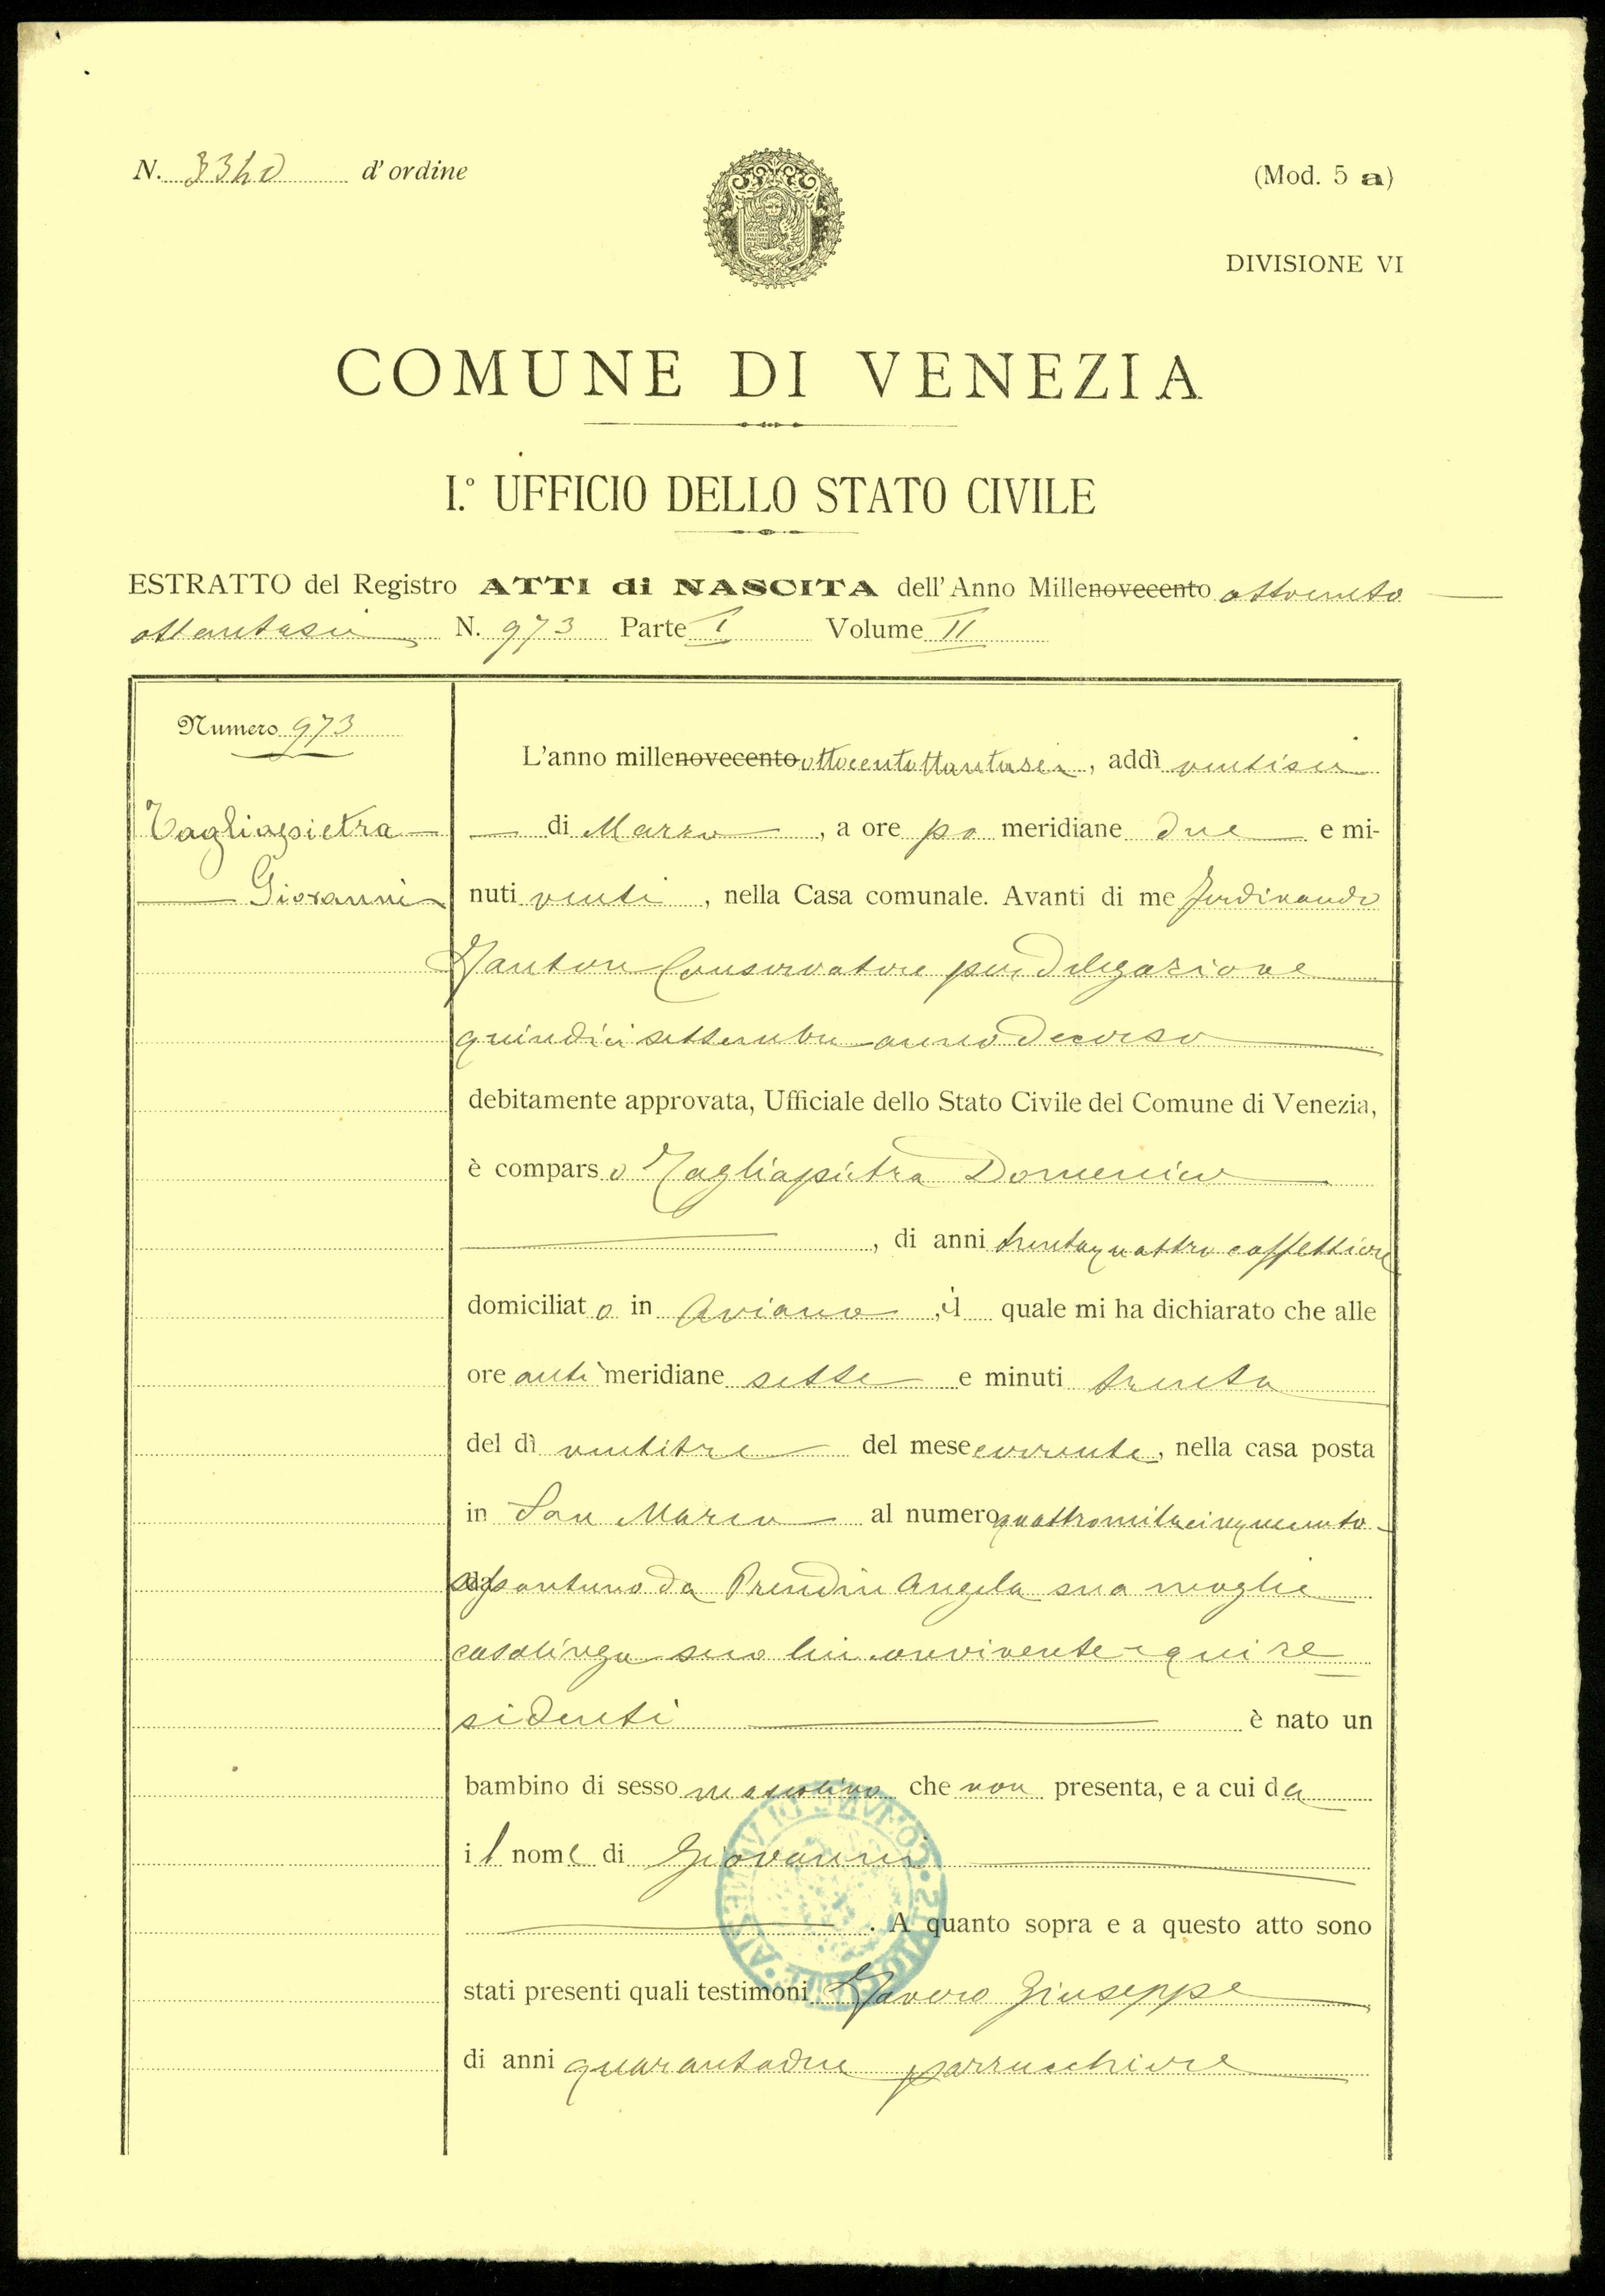 N. 3340 d'ordine
(Mod. 5 a)
DIVISIONE VI
COMUNE DI VENEZIA
I.° UFFICIO DELLO STATO CIVILE
ESTRATTO del Registro ATTI di NASCITA dell'Anno Millenovecento ottocento
ottantasei N. 973 Parte I Volume II
Numero 973
Tagliapietra
Giovanni
L'anno millenovecento ottocentottantasei, addì ventisei
di Marzo, a ore po meridiane due e mi-
nuti venti, nella Casa comunale. Avanti di me Ferdinando
Conservatore per delegazione
quindici settembre anno decorso
debitamente approvata, Ufficiale dello Stato Civile del Comune di Venezia,
è comparso Tagliapietra Domenico
, di anni trentaquattro caffettiere
domiciliato in Aviano, il quale mi ha dichiarato che alle
ore anti meridiane sette e minuti trenta
del dì ventitre del mese corrente, nella casa posta
in San Marco al numero quattromilacinquecento
da Prendin Angela sua moglie
casalinga seco lui convivente e qui re
sidenti è nato un
bambino di sesso mascolino che non presenta, e a cui da
il nome di Giovanni
. A quanto sopra e a questo atto sono
stati presenti quali testimoni Giuseppe
di anni quarantadue parrucchiere